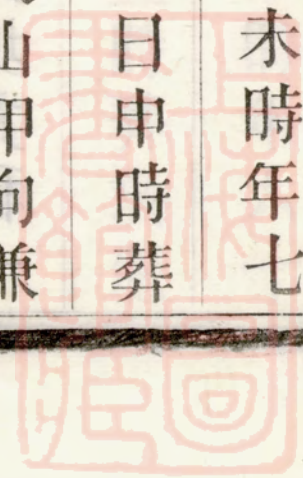 未時年七
日申時葬
山甲向兼